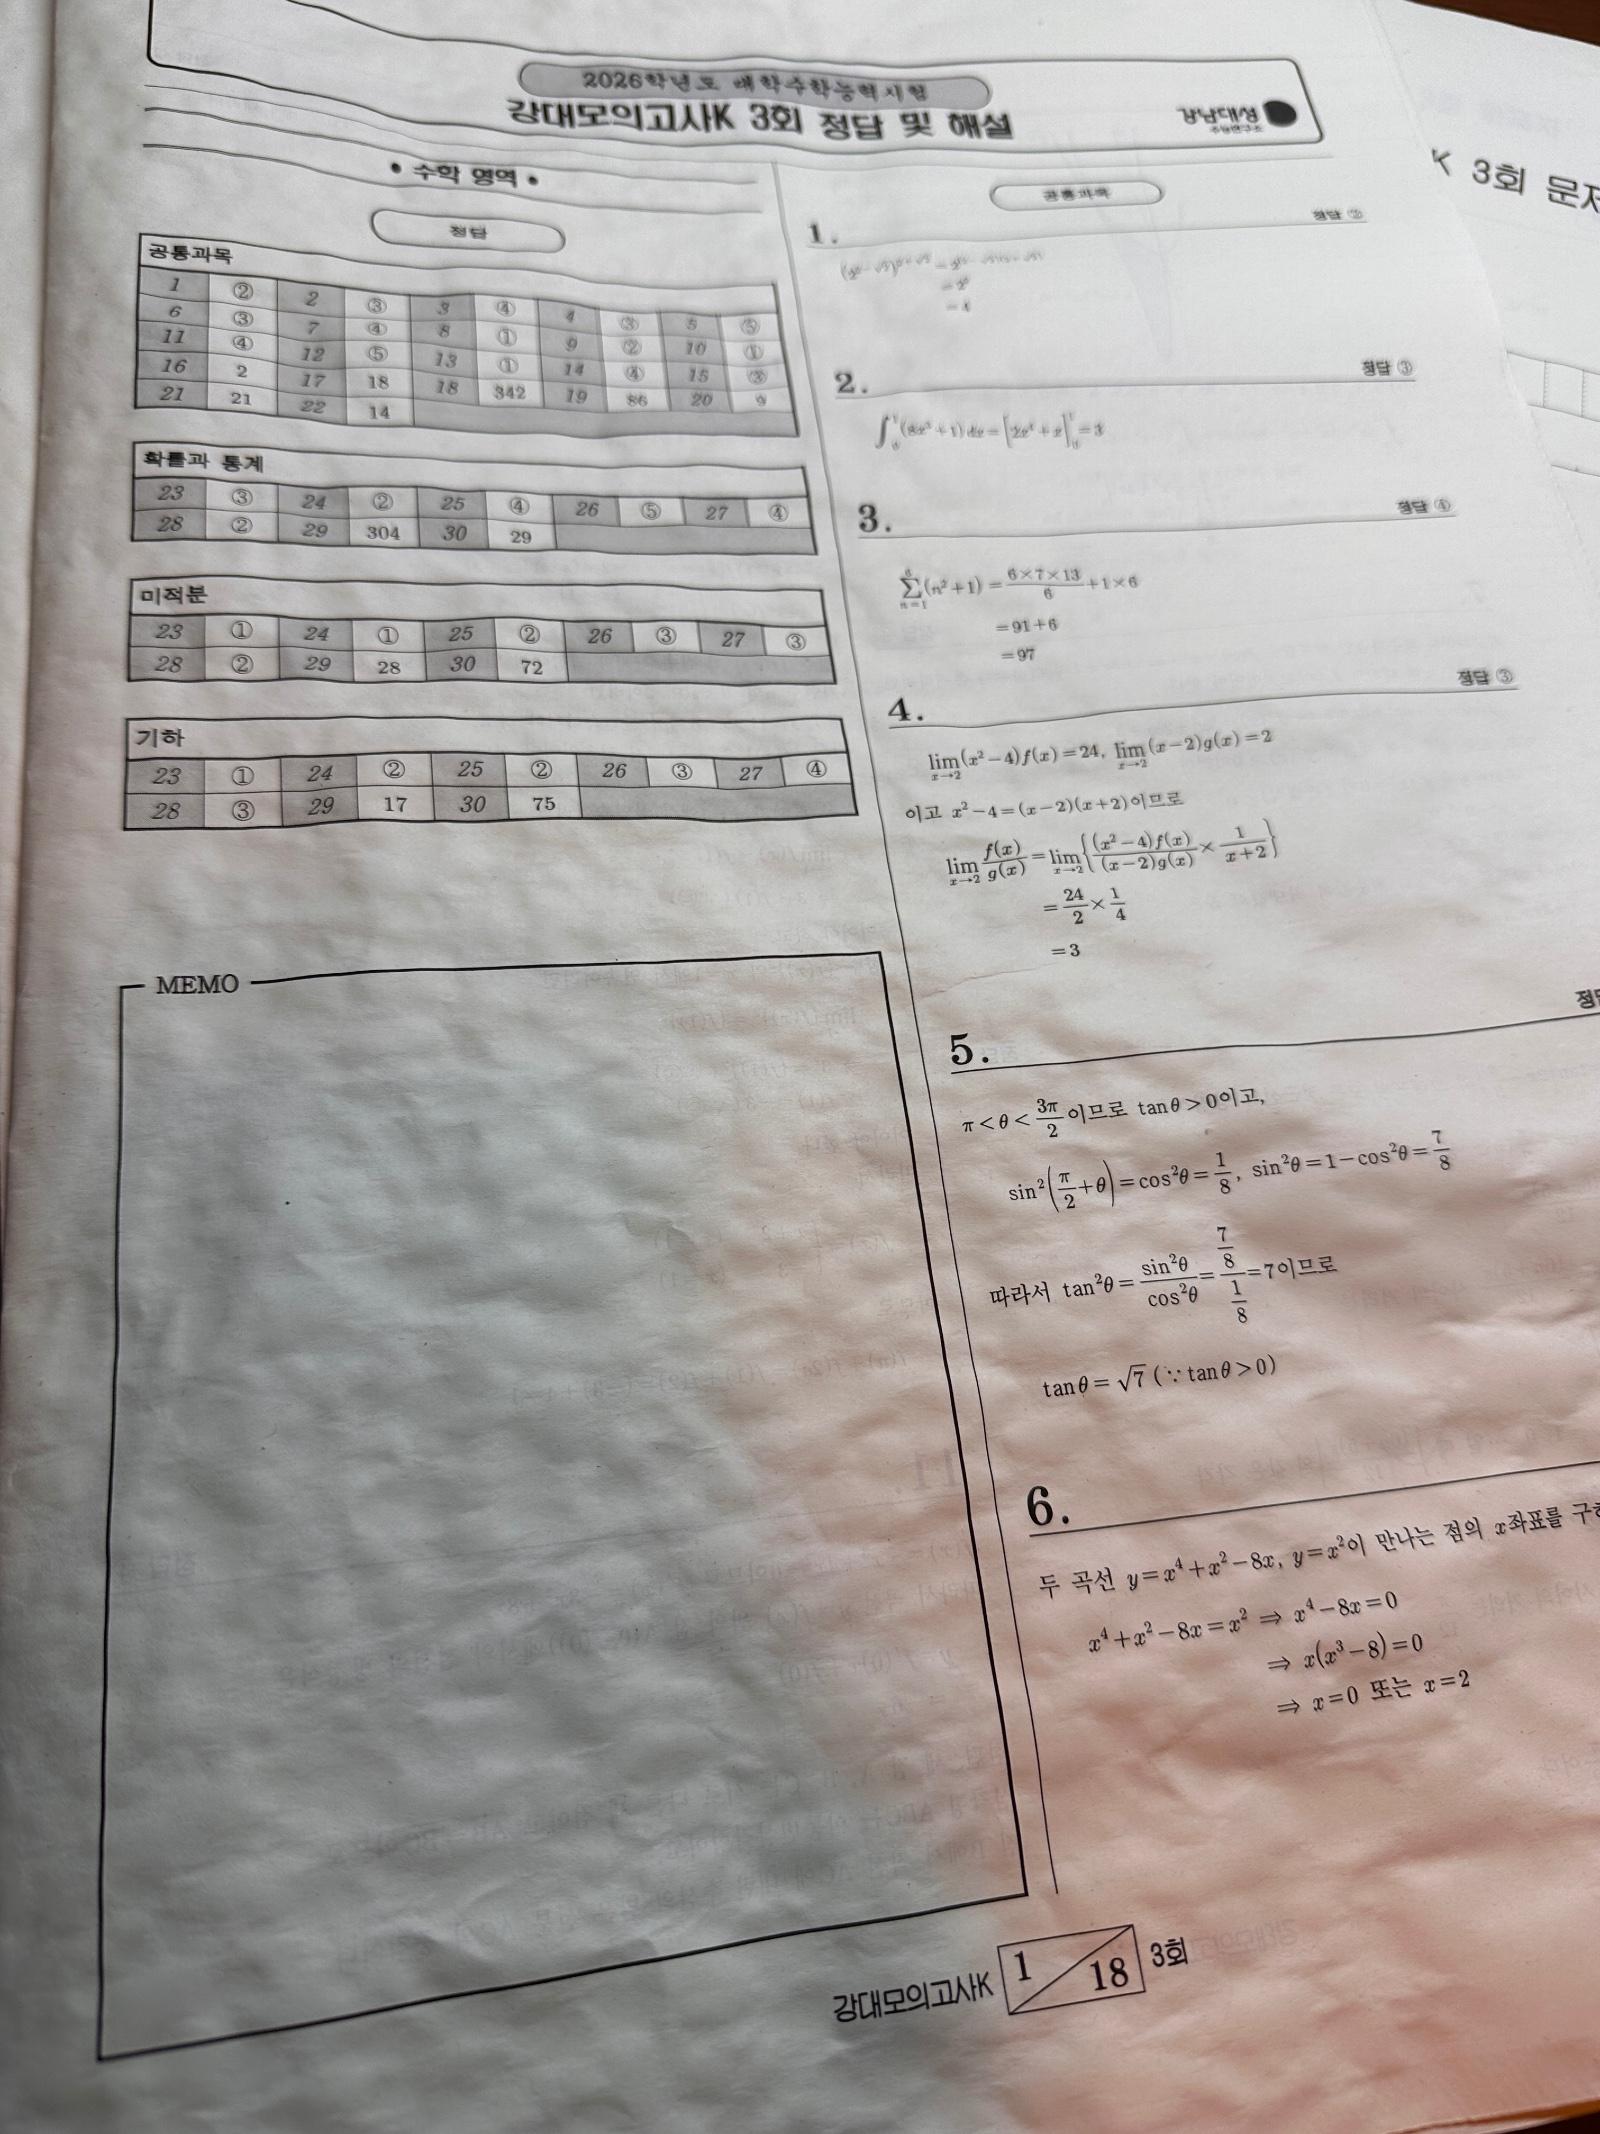 2026학년도 대학수학능력시험
강대모의고사K 3회 정답 및 해설
강남대성
수능연구소
K 3회 문제
• 수학 영역 •
정답
공통과목
1 ② 2 ③ 3 ④ 4 ③ 5 ⑤
6 ③ 7 ④ 8 ① 9 ② 10 ①
11 ④ 12 ⑤ 13 ① 14 ④ 15
16 2 17 18 18 342 19 86 20 9
21 21 22 14
확률과 통계
23 ③ 24 ② 25 ④ 26 ⑤ 27 ④
28 ② 29 304 30 29
미적분
23 ① 24 ① 25 ② 26 ③ 27 ③
28 ② 29 28 30 72
기하
23 ① 24 ② 25 ② 26 ③ 27 ④
28 ③ 29 17 30 75
MEMO
공통과목
1. 정답 ②
2. 정답 ③
∫₀¹(8x³+1)dx=[2x⁴+x]₀¹=3
3. 정답 ④
∑_{n=1}^{6}(n²+1)=6×7×13/6+1×6
=91+6
=97
4. 정답 ③
lim_{x→2}(x²-4)f(x)=24, lim_{x→2}(x-2)g(x)=2
이고 x²-4=(x-2)(x+2)이므로
lim_{x→2} f(x)/g(x)=lim_{x→2}{(x²-4)f(x)/(x-2)g(x)×1/(x+2)}
=24/2×1/4
=3
5.
π<θ<3π/2이므로 tanθ>0이고,
sin²(π/2+θ)=cos²θ=1/8, sin²θ=1-cos²θ=7/8
따라서 tan²θ=sin²θ/cos²θ=(7/8)/(1/8)=7이므로
tanθ=√7 (∵tanθ>0)
6.
두 곡선 y=x⁴+x²-8x, y=x²이 만나는 점의 x좌표를
x⁴+x²-8x=x² ⇒ x⁴-8x=0
⇒ x(x³-8)=0
⇒ x=0 또는 x=2
강대모의고사K 1/18 3회